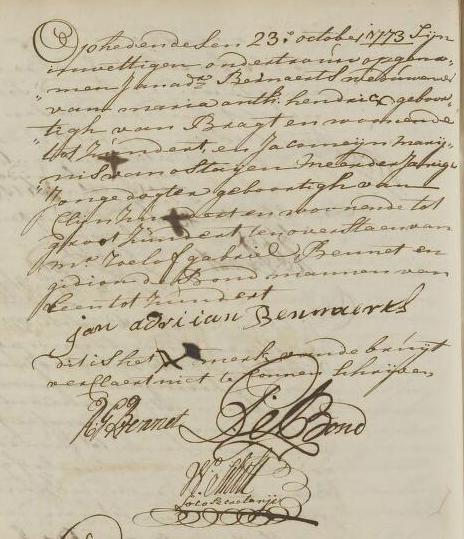 Op heden desen 23.e october 1773 Zijn
in wettigen ondertrouw opgeno„
„men Jan ad:n Bernaerts weduwenaer
van maria anth: hendricx geboor„
tigh van Bragt en woonende
tot Zundert, en Jacomijn marij„
nis van Staijen meerderjarige
Jonge dogter geboortigh van
Clijn Zundert en woonende tot
groot Zundert ten overstaen van
mr Roelof gabriel Bennet en
gidion de Bond mannen van
Leen tot Zundert
jan adriian Bernaerts
dit is het X merk van de bruijt
verclaert niet te connen schrijven
R: G: Bennet G: de Bond
Loco Secretarijs